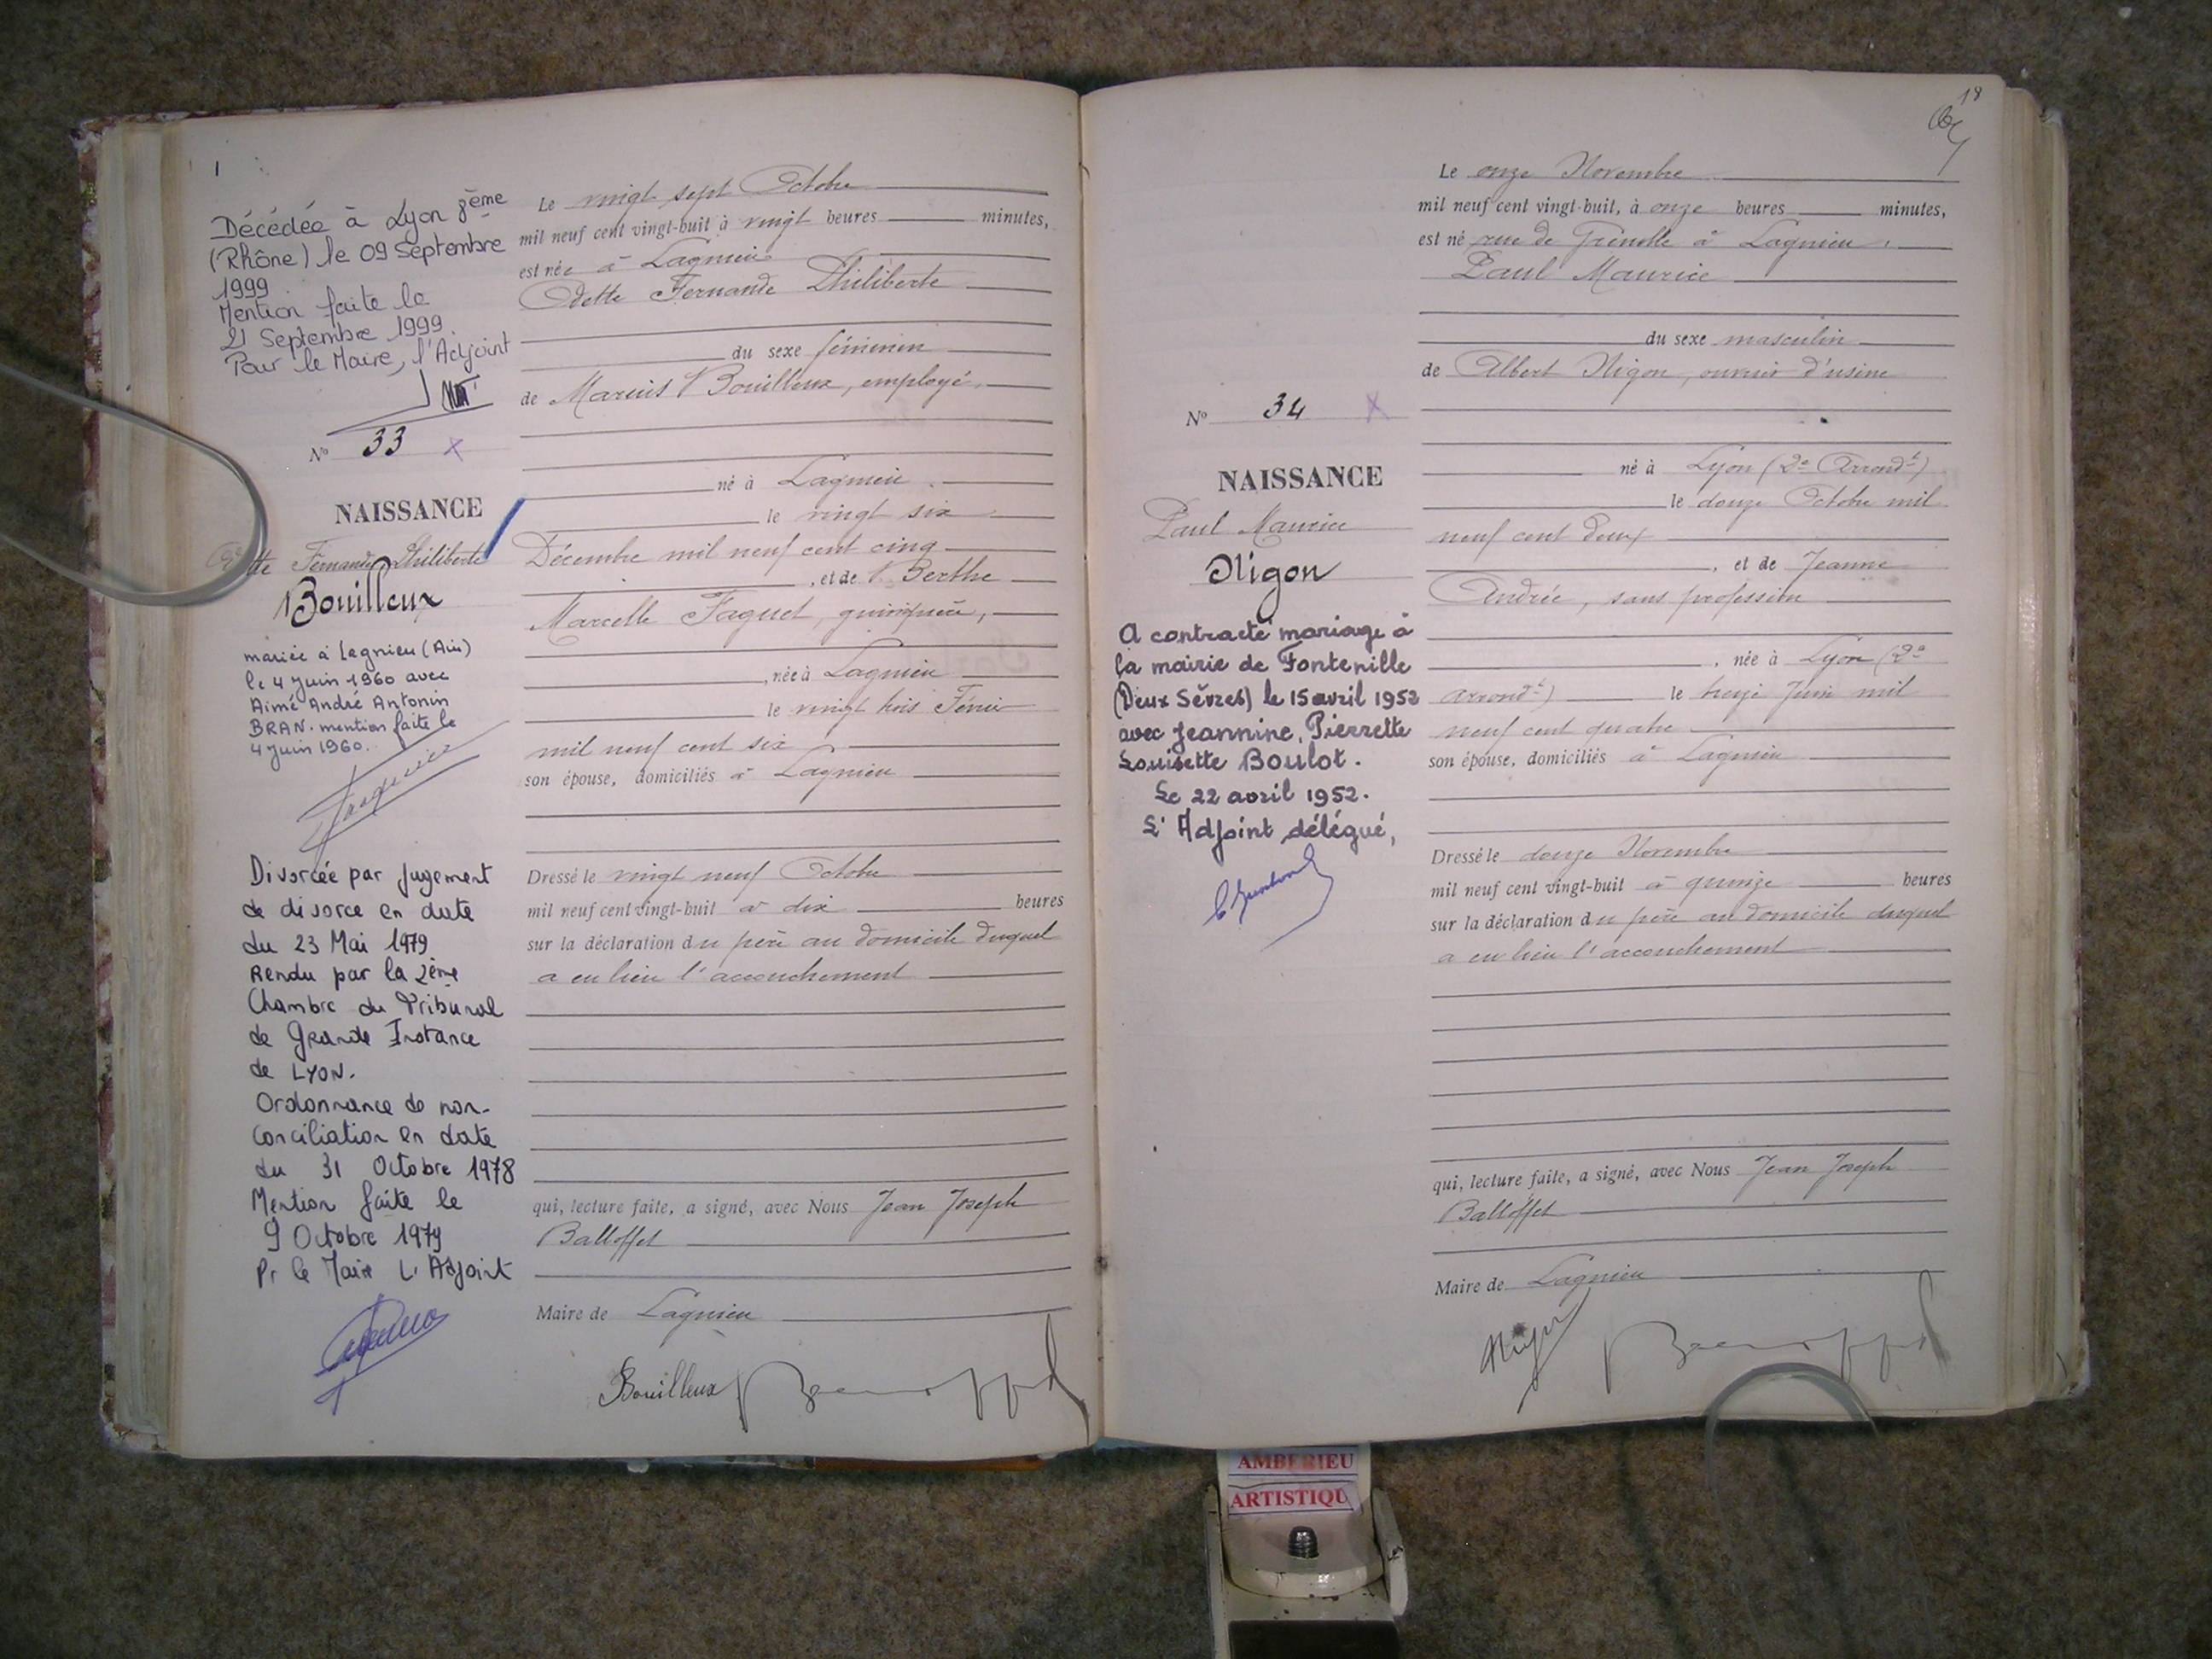 Décédée à Lyon 8ème
(Rhône) le 09 Septembre
1999
Mention faite le
21 Septembre 1999.
Pour le Maire, l'Adjoint
Nº 33
NAISSANCE
Odette Fernande Philiberte
Bouilleux
mariée à Lagnieu (Ain)
le 4 Juin 1960 avec
Aimé André Antonin
BRAN. mention faite le
4 Juin 1960.
Divorcée par jugement
de divorce en date
du 23 Mai 1979
Rendu par la 2ème
Chambre du Tribunal
de Grande Instance
de LYON.
Ordonnance de non-
Conciliation en date
du 31 Octobre 1978
Mention faite le
9 Octobre 1979
Pr le Maire L'Adjoint
Le vingt sept Octobre
mil neuf cent vingt-huit à vingt heures minutes,
est née à Lagnieu
Odette Fernande Philiberte
du sexe féminin
de Marius Bouilleux, employé,
né à Lagnieu
le vingt six
Décembre mil neuf cent cinq
, et de Berthe
Marcelle Faguet,
, née à Lagnieu
le vingt trois Février
mil neuf cent six
son épouse, domiciliés à Lagnieu
Dressé le vingt neuf Octobre
mil neuf cent vingt-huit à dix heures
sur la déclaration du père au domicile duquel
a eu lieu l'accouchement
qui, lecture faite, a signé, avec Nous Jean Joseph
Balloffet
Maire de Lagnieu
Bouilleux
18
Le onze Novembre
mil neuf cent vingt-huit, à onze heures minutes,
est né rue de Grenelle à Lagnieu,
Paul Maurice
du sexe masculin
de Albert Nigon, ouvrier d'usine
né à Lyon (2e Arrondt)
le douze Octobre mil
neuf cent deux
, et de Jeanne
Andrée, sans profession
, née à Lyon (2e
arrondt) le treize Juin mil
neuf cent quatre
son épouse, domiciliés à Lagnieu
Dressé le douze Novembre
mil neuf cent vingt-huit à quinze heures
sur la déclaration du père au domicile duquel
a eu lieu l'accouchement
qui, lecture faite, a signé, avec Nous Jean Joseph
Balloffet
Maire de Lagnieu
Nº 34
NAISSANCE
Paul Maurice
Nigon
A contracté mariage à
la mairie de Fontenille
(Deux Sèvres) le 15 avril 1952
avec Jeannine, Pierrette
Louisette Boulot.
Le 22 avril 1952.
L'Adjoint délégué,
AMBERIEU
ARTISTIQU